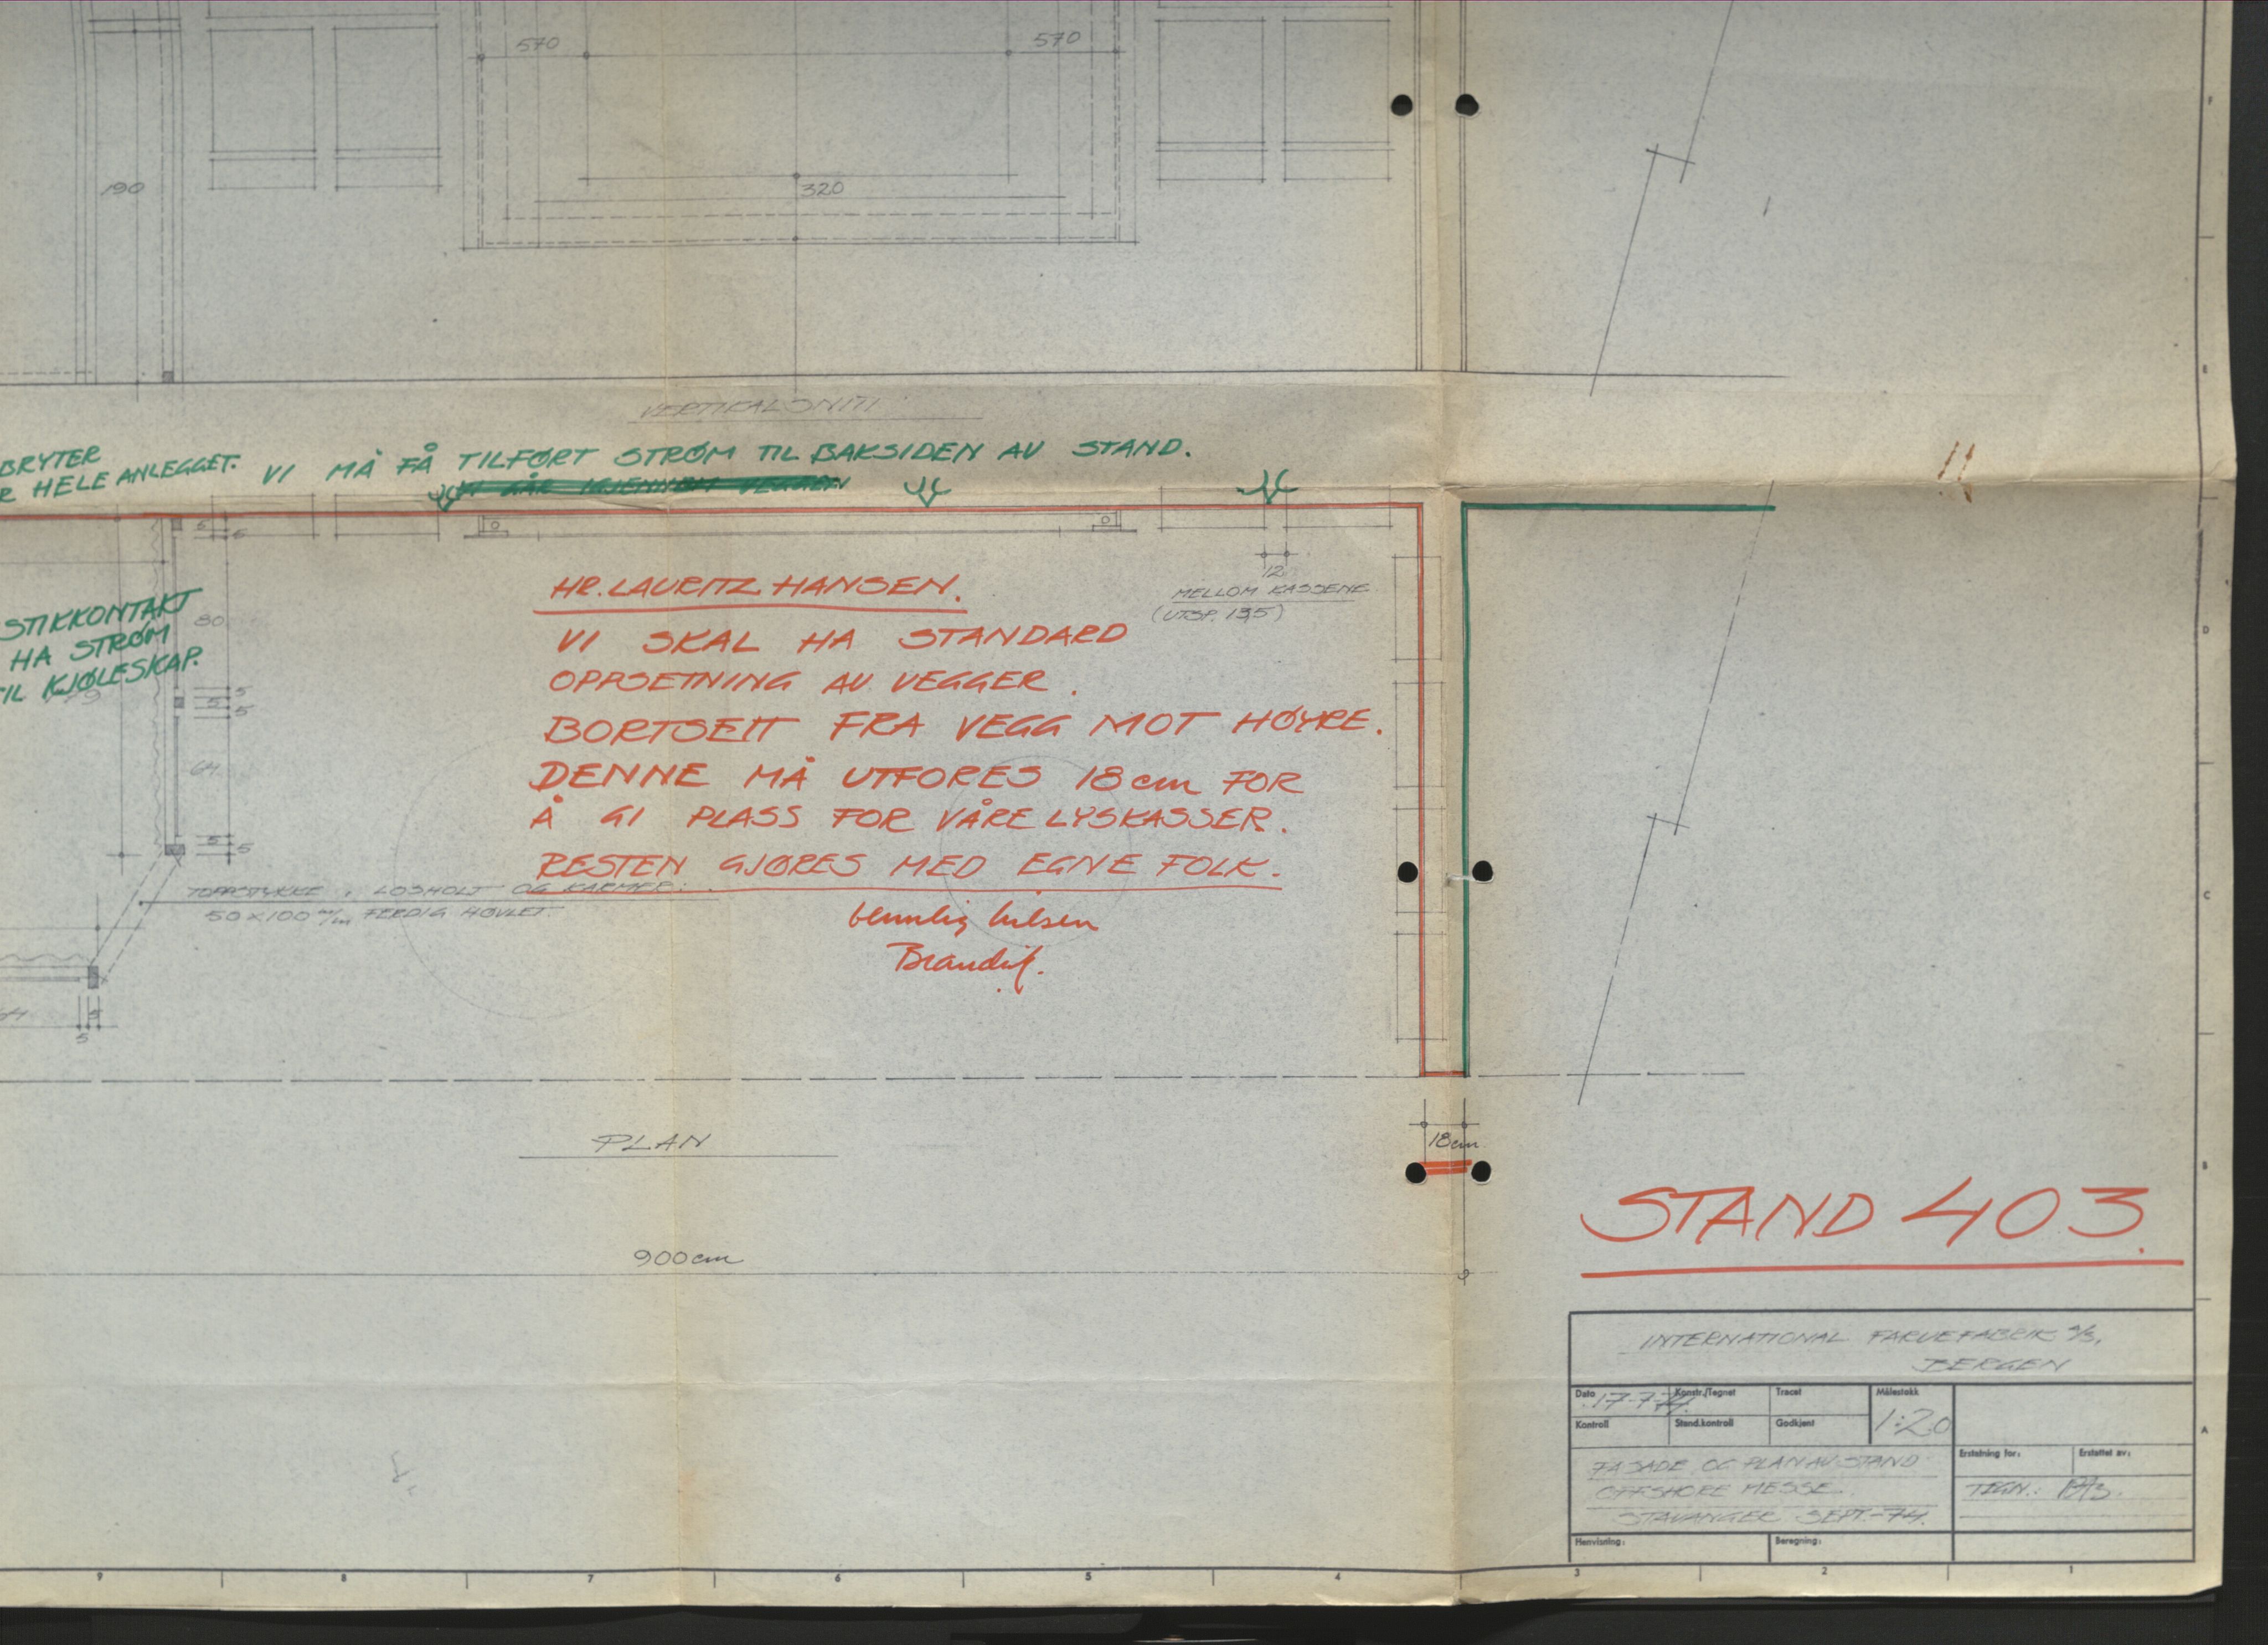 570
570
190
320
VERTIKALSNITT
BRYTER
R HELE ANLEGGET.
VI MÅ FÅ TILFØRT STRØM TIL BAKSIDEN AV STAND.
VI GÅR IGJENNEM VEGGEN
5
5
12
MELLOM KASSENE
(UTSP. 13,5)
HR. LAURITZ HANSEN.
VI SKAL HA STANDARD
OPPSETNING AV VEGGER.
BORTSETT FRA VEGG MOT HØYRE.
DENNE MÅ UTFORES 18 cm FOR
Å GI PLASS FOR VÅRE LYSKASSER.
RESTEN GJØRES MED EGNE FOLK.
vennlig hilsen
STIKKONTAKT
HA STRØM
TIL KJØLESKAP.
80
5
5
5
64
5
5
TOPPSTYKKE, LOSHOLT OG KARMER:
50 X 100 m/m FERDIG HØVLET
64
5
5
PLAN
18 cm
900 cm
STAND 403.
INTERNATIONAL FARVEFABRIK A/S,
BERGEN
Dato 17-7-74. Konstr./Tegnet Tracet Målestokk
1:20
Kontroll Stand.kontroll Godkjent
Erstatning for: Erstattet av:
FASADE OG PLAN AV STAND
OFFSHORE MESSE.
STAVANGER SEPT.-74.
TEGN.:
Henvisning: Beregning:
F
E
D
C
B
A
9 8 7 6 5 4 3 2 1